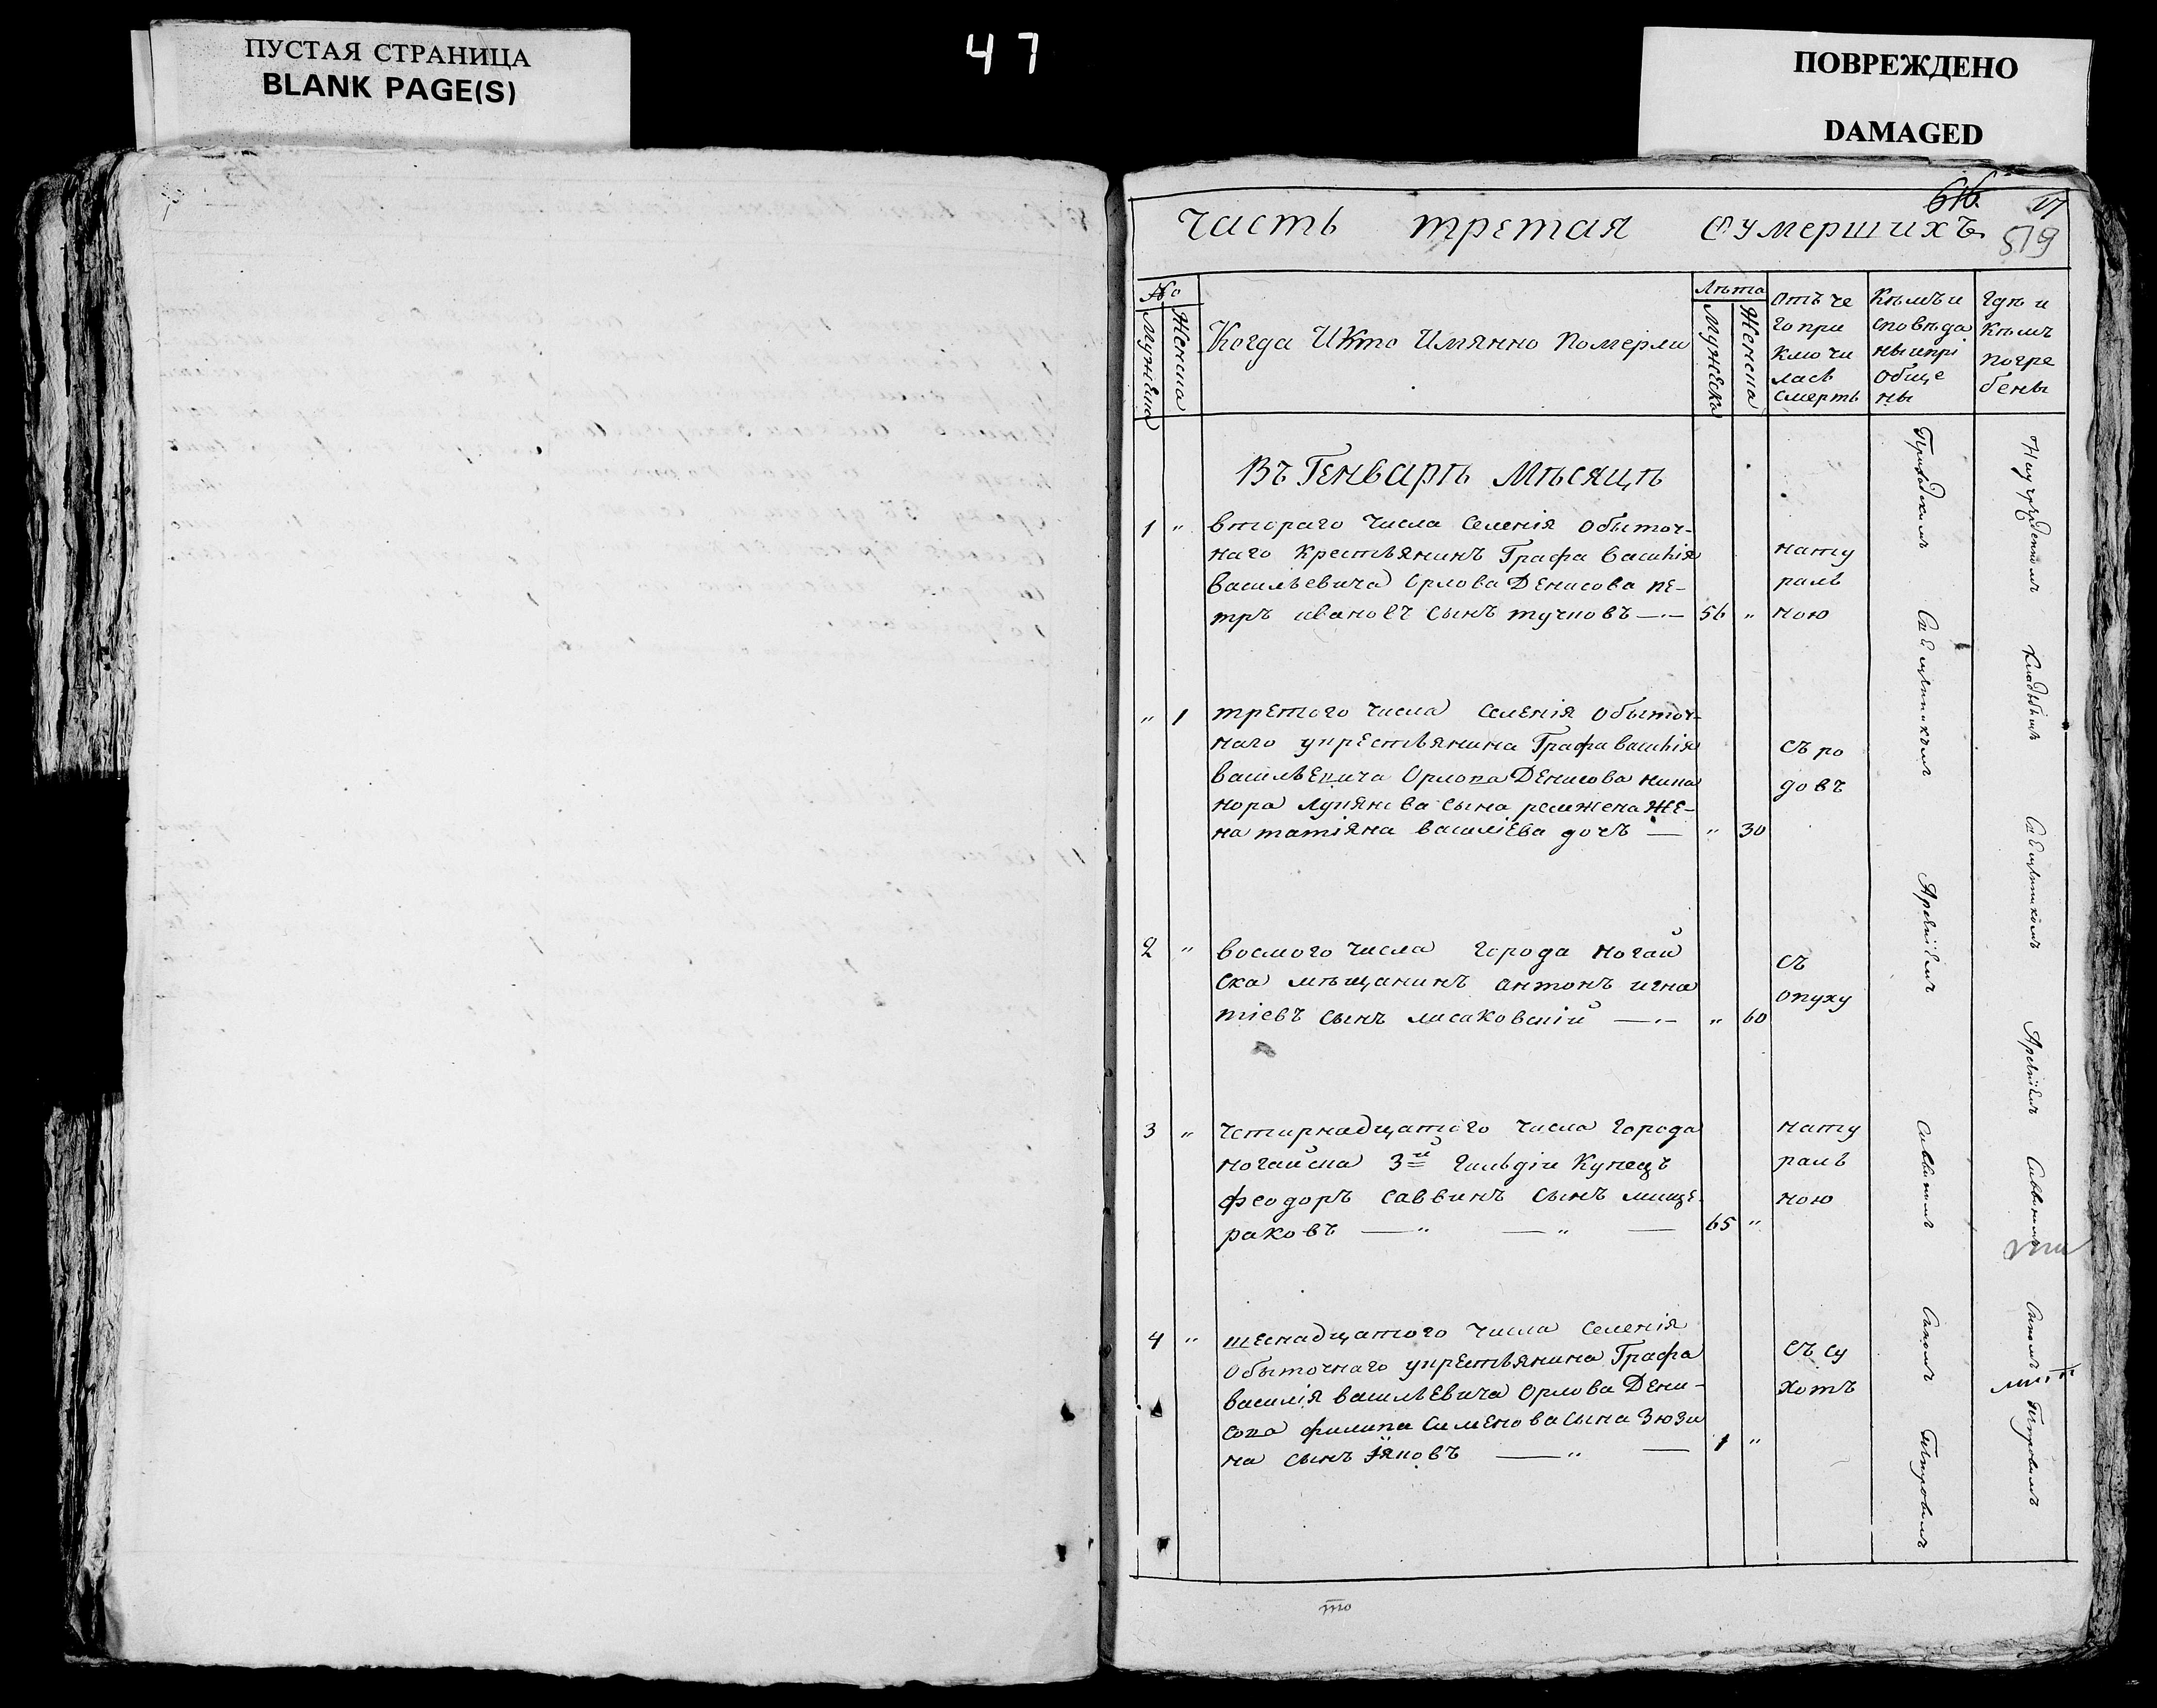 ПУСТАЯ СТРАНИЦА
BLANK PAGE(S)
47
ПОВРЕЖДЕНО
DAMAGED
616
519
Часть третая оумершихъ
№
Мужеска
Женска
Когда Икто Имянно Померли
Лѣта
Мужеска
Женска
Отъ че
го при
клю чи
лась
смерть
Кѣмъ и
сповѣда
ны и прі
обще
ны
Гдѣ и
кѣмъ
погре
бены
Въ Генварѣ Мѣсяцѣ
1 " втораго числа селенія Обыточ-
наго крестьянинъ Графа василія
васильевича Орлова Денисова пе-
тръ ивановъ сынъ тучковъ 56 "
нату
раль
ною
" 1 третого числа селенія Обыточ-
наго укрестьянина Графа василія
васильевича Орлова Денисова ника
нора лукянова сына жена же-
на татіяна василіева дочь " 30
съ ро
довъ
2 " восмого числа города ногай
ска мѣщанинъ антонъ игна
тіевъ сынъ лисаковскій " 60
съ
опуху
3 " четырнадцатого числа города
ногайска 3й гильдіи купецъ
феодоръ саввинъ сынъ мище-
раковъ 65 "
нату
раль
ною
4 " шеснадцатого числа селенія
Обыточнаго укрестьянина Графа
василія васильевича Орлова Дени-
сова филипа Сименова сына Зюзи
на сынъ Іяковъ 1 "
съ су
хотъ
Священникомъ Арсеніемъ Саввинымъ
кладбищѣ Священникомъ Арсеніемъ Саввинымъ